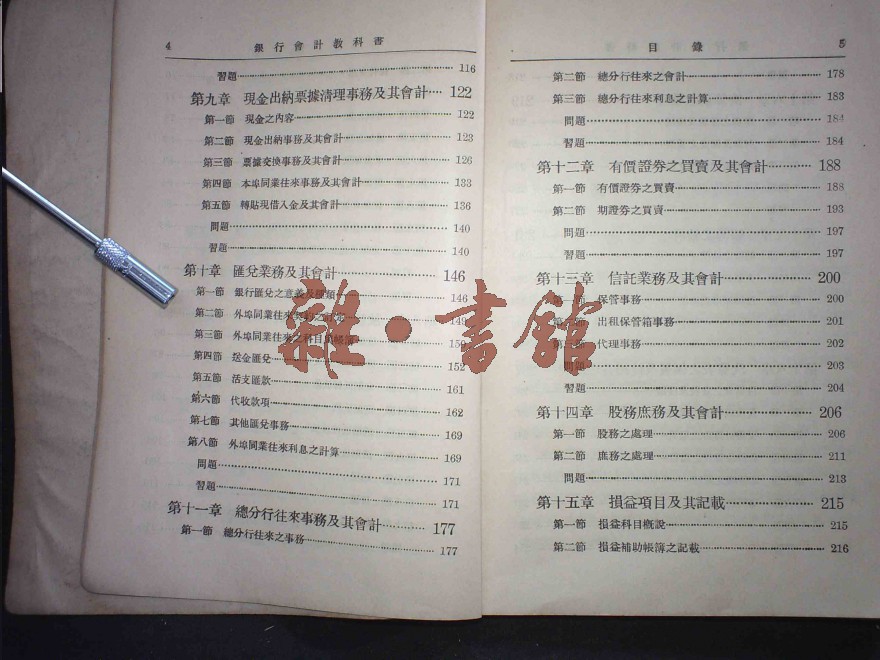 4 銀行會計教科書
習題 116
第九章 現金出納票據清理事務及其會計 122
第一節 現金之內容 122
第二節 現金出納事務及其會計 123
第三節 票據交換事務及其會計 126
第四節 本埠同業往來事務及其會計 133
第五節 轉貼現借入金及其會計 136
問題 140
習題 140
第十章 匯兌業務及其會計 146
第一節 銀行匯兌之意義及種類 146
第二節 外埠同業往來
第三節 外埠同業往來之科目與帳簿 150
第四節 送金匯兌 152
第五節 活支匯款 161
第六節 代收款項 162
第七節 其他匯兌事務 169
第八節 外埠同業往來利息之計算 169
問題 171
習題 171
第十一章 總分行往來事務及其會計 177
第一節 總分行往來之事務 177
目錄 5
第二節 總分行往來之會計 178
第三節 總分行往來利息之計算 183
問題 184
習題 184
第十二章 有價證券之買賣及其會計 188
第一節 有價證券之買賣 188
第二節 期證券之買賣 193
問題 197
習題 197
第十三章 信託業務及其會計 200
第一節 保管事務 200
第二節 出租保管箱事務 201
第三節 代理事務 202
問題 203
習題 204
第十四章 股務庶務及其會計 206
第一節 股務之處理 206
第二節 庶務之處理 211
問題 213
第十五章 損益項目及其記載 215
第一節 損益科目概說 215
第二節 損益補助帳簿之記載 216
雜·書館